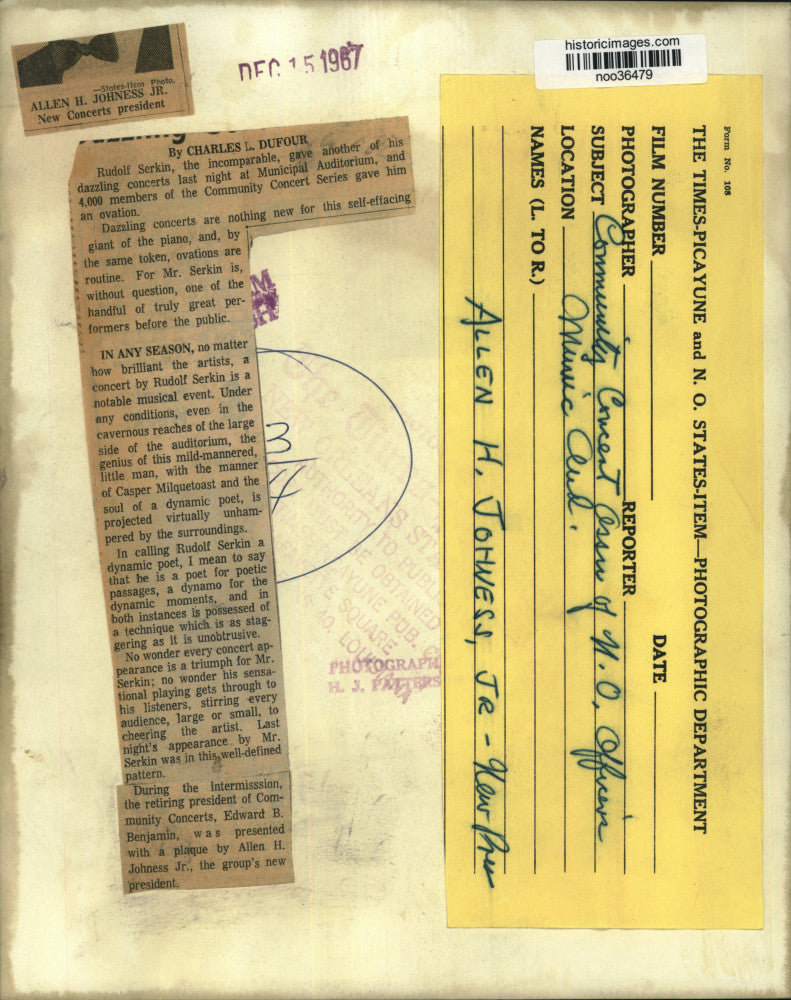 historicimages.com
noo36479
DEC 15 1967
—States-Item Photo.
ALLEN H. JOHNESS JR.
New Concerts president
By CHARLES L. DUFOUR
Rudolf Serkin, the incomparable, gave another of his
dazzling concerts last night at Municipal Auditorium, and
4,000 members of the Community Concert Series gave him
an ovation.
Dazzling concerts are nothing new for this self-effacing
giant of the piano, and, by
the same token, ovations are
routine. For Mr. Serkin is,
without question, one of the
handful of truly great per-
formers before the public.
IN ANY SEASON, no matter
how brilliant the artists, a
concert by Rudolf Serkin is a
notable musical event. Under
any conditions, even in the
cavernous reaches of the large
side of the auditorium, the
genius of this mild-mannered,
little man, with the manner
of Casper Milquetoast and the
soul of a dynamic poet, is
projected virtually unham-
pered by the surroundings.
In calling Rudolf Serkin a
dynamic poet, I mean to say
that he is a poet for poetic
passages, a dynamo for the
dynamic moments, and in
both instances is possessed of
a technique which is as stag-
gering as it is unobtrusive.
No wonder every concert ap-
pearance is a triumph for Mr.
Serkin; no wonder his sensa-
tional playing gets through to
his listeners, stirring every
audience, large or small, to
cheering the artist. Last
night's appearance by Mr.
Serkin was in this well-defined
pattern.
During the intermisssion,
the retiring president of Com-
munity Concerts, Edward B.
Benjamin, was presented
with a plaque by Allen H.
Johness Jr., the group's new
president.
PHOTOGRAPH
H. J. PATTERS
Form No. 108
THE TIMES-PICAYUNE and N. O. STATES-ITEM—PHOTOGRAPHIC DEPARTMENT
FILM NUMBER DATE
PHOTOGRAPHER REPORTER
SUBJECT Community Concert Assn of N.O. Officers
LOCATION Music Club.
NAMES (L. TO R.)
ALLEN H. JOHNESS, JR - New Pres